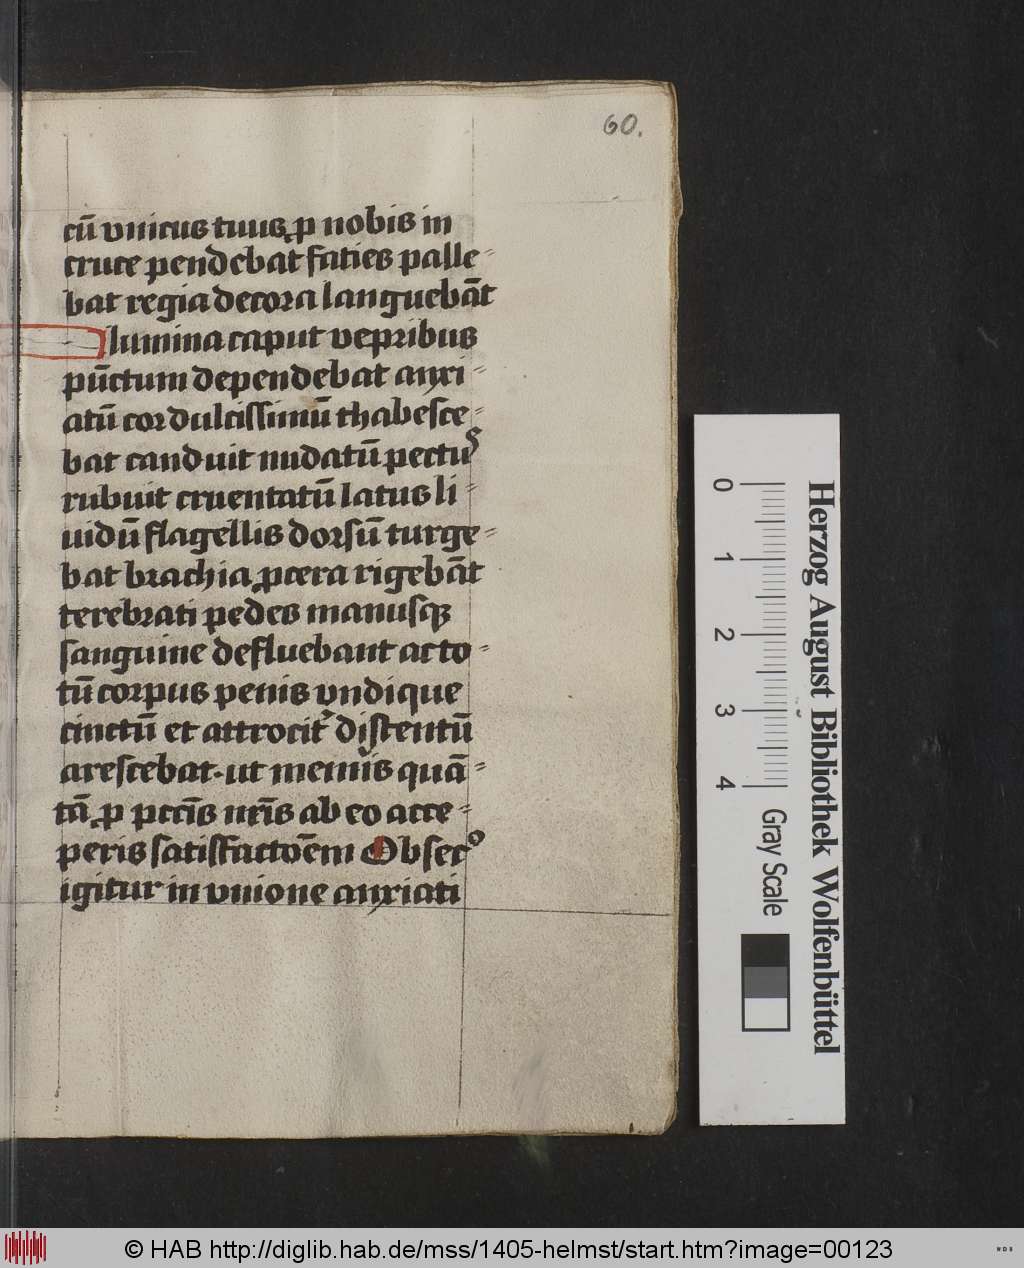 60.
cū vnicus tuus ꝓ nobis in
cruce pendebat facies palle⸗
bat regia decora languebāt
lumina caput vepribus
pūctum dependebat anxi⸗
atū cor dulcissimū thabesce⸗
bat canduit nudatū pectus
rubuit cruentatū latus li⸗
uidū flagellis dorsū turge⸗
bat brachia ꝓcera rigebāt
terebrati pedes manusqꝫ
sanguine defluebant ac to⸗
tū corpus penis vndique
cinctū et attrocit̾ distentū
arescebat. ut memīs quā⸗
tā ꝓ pccīs nrīs ab eo acce⸗
peris satisfactōem Obsecº
igitur in vnione anxiati
0
1
2
3
4
Gray Scale
Herzog August Bibliothek Wolfenbüttel
© HAB http://diglib.hab.de/mss/1405-helmst/start.htm?image=00123